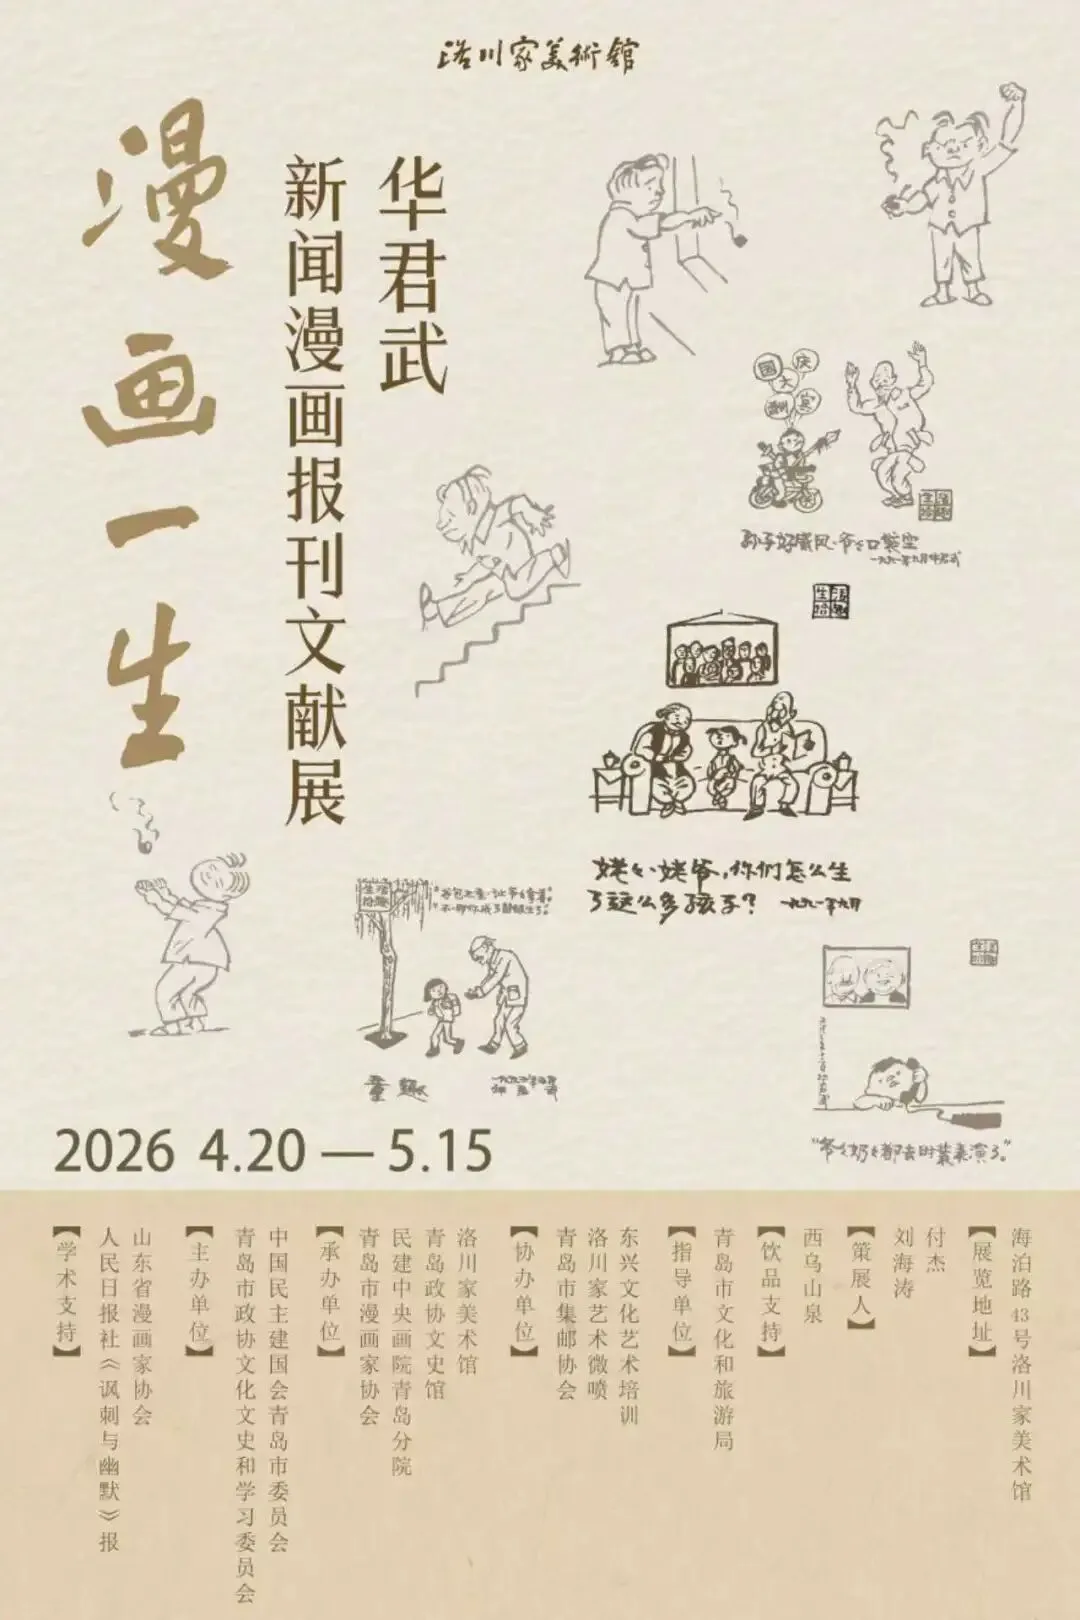 洛川家美術館
漫画一生
华君武
新闻漫画报刊文献展
国庆
大
生活
拾趣
孙子好威风·爷爷口袋空
一九九一年九月华君武
生活
拾趣
姥姥姥爷,你们怎么生
了这么多孩子? 一九九一年九月
生活
拾趣
童趣
生活
拾趣
"爷爷奶奶都去时装表演了。"
2026 4.20—5.15
【学术支持】
人民日报社《讽刺与幽默》报
山东省漫画家协会
【主办单位】
青岛市政协文化文史和学习委员会
中国民主建国会青岛市委员会
【承办单位】
青岛市漫画家协会
民建中央画院青岛分院
青岛政协文史馆
洛川家美术馆
【协办单位】
青岛市集邮协会
洛川家艺术微喷
东兴文化艺术培训
【指导单位】
青岛市文化和旅游局
【饮品支持】
西乌山泉
【策展人】
刘海涛
付杰
【展览地址】
海泊路43号洛川家美术馆